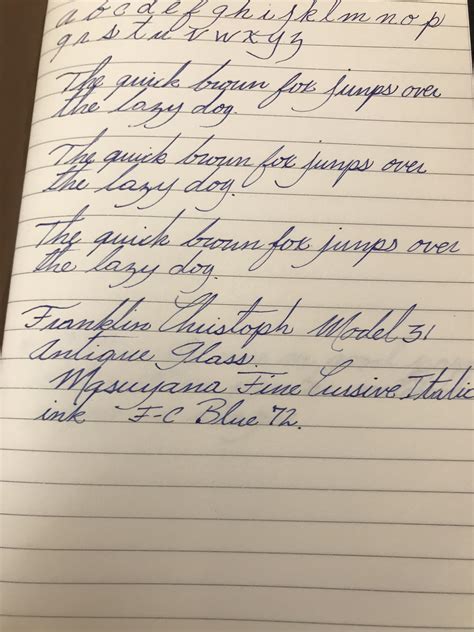 a b c d e f g h i j k l m n o p
q r s t u v w x y z
The quick brown fox jumps over
the lazy dog.
The quick brown fox jumps over
the lazy dog.
The quick brown fox jumps over
the lazy dog.
Franklin Christoph Model 31
Antique Glass.
Masuyama Fine Cursive Italic
ink F-C Blue 72.